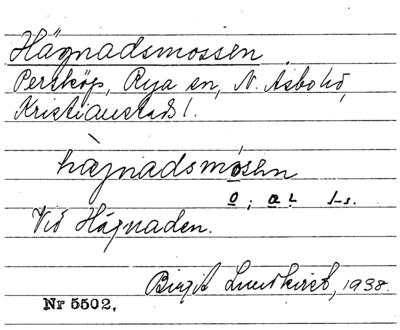 Hägnadsmossen
Perstorp, Rya sn, N. Åsbo hd,
Kristianstads l.
hæ̀jnadsmósen
o; a l l-s.
Vid Hägnaden.
Birgit Lundkvist, 1938.
Nr 5502.